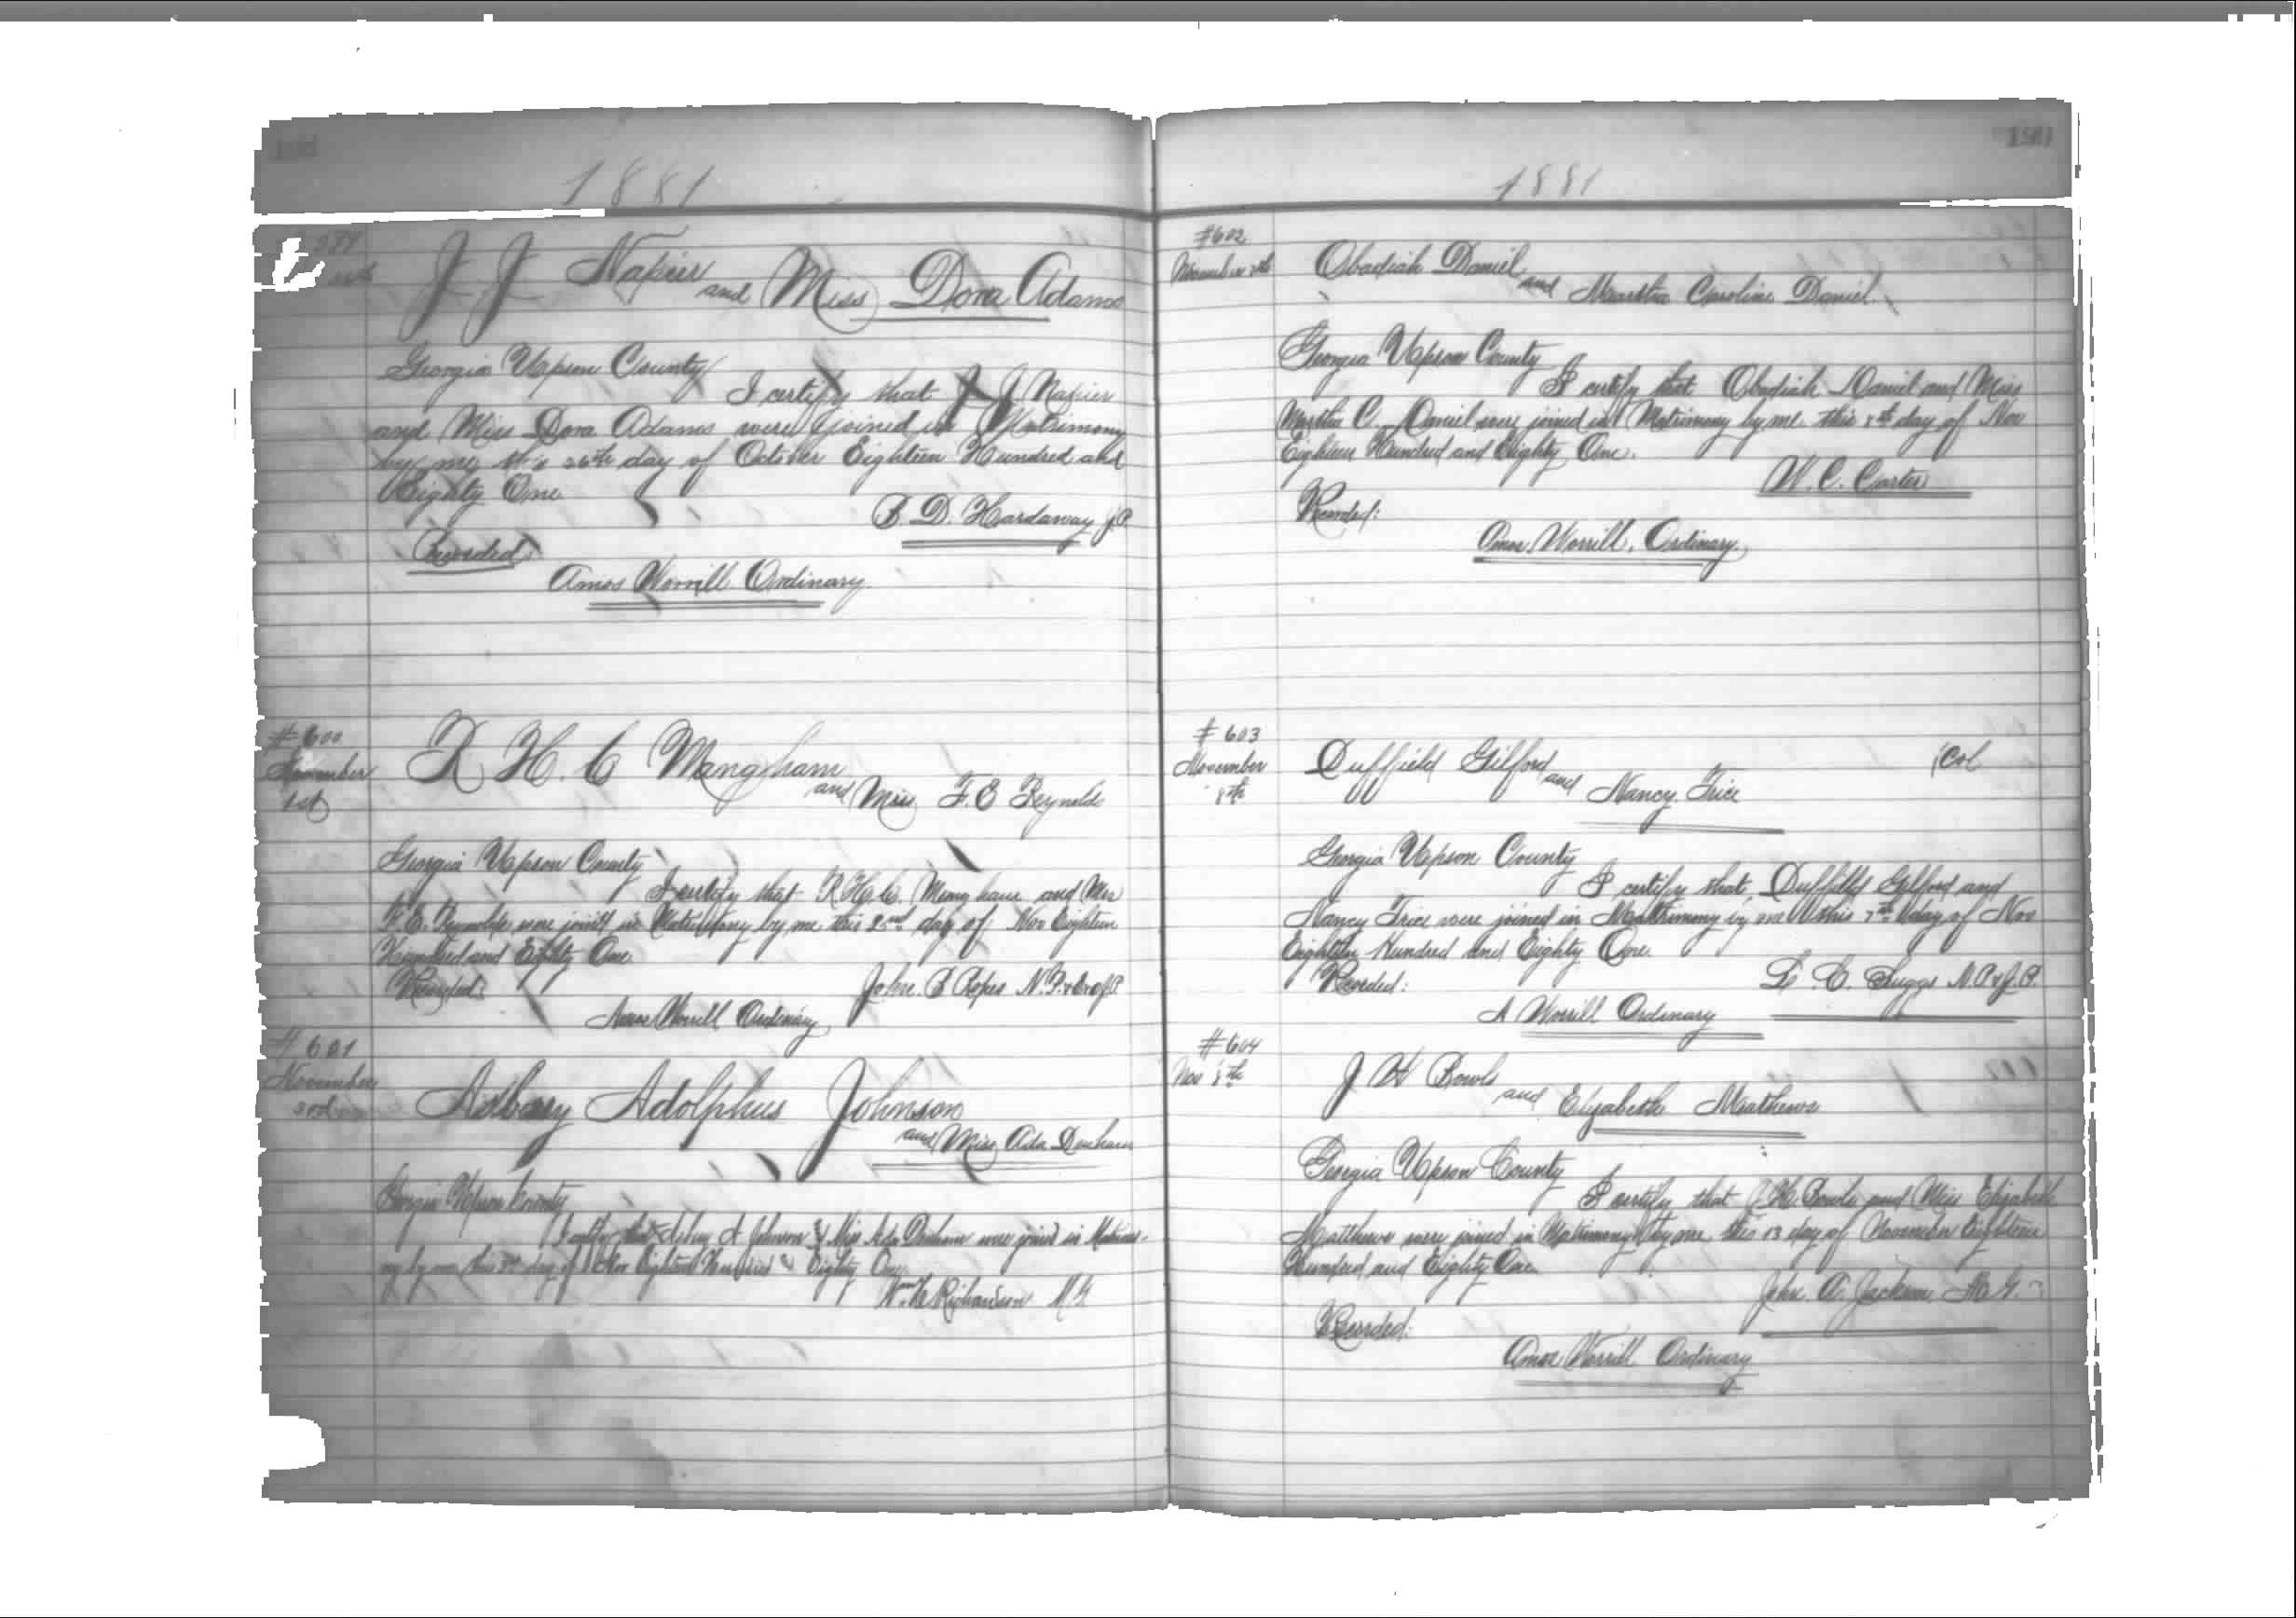 1881
J J Napier
and Miss Dora Adams
Georgia Upson County
I certify that J J Napier
and Miss Dora Adams were joined in Matrimony
by me this 26th day of October Eighteen Hundred and
Eighty One
B. D. Hardaway J P
Recorded
Amos Worrill Ordinary
#600
November
1st
R H. C Mangham
and Miss F. E Reynolds
Georgia Upson County
I certify that R. H. C. Mangham and Miss
F. E. Reynolds were joined in Matrimony by me this 2nd day of Nov Eighteen
Hundred and Eighty One
Recorded
John. B Roper N. P.
Amos Worrill Ordinary
# 601
November
3rd
Asbury Adolphus Johnson
and Miss Ada Denham
Georgia Upson County
I certify that Asbury A Johnson & Miss Ada Denham were joined in Matrimo-
ny by me this 3rd day of Nov Eighteen Hundred & Eighty One
Richardson M G
1881
#602
November
Obadiah Daniel
and Martha Caroline Daniel
Georgia Upson County
I certify that Obadiah Daniel and Miss
Martha C. Daniel were joined in Matrimony by me this 8th day of Nov
Eighteen Hundred and Eighty One.
W. C. Carter
Recorded:
Amos Worrill. Ordinary.
# 603
November
8th
Duffield Gilford
and
Nancy Trice
(Col
Georgia Upson County
I certify that Duffield Gilford and
Nancy Trice were joined in Matrimony by me this day of Nov
Eighteen Hundred and Eighty One.
Recorded:
L. C. Suggs N. P. & J. P.
A Worrill Ordinary
#604
Nov 8th
J H Bowls
and Elizabeth Mathews
Georgia Upson County
I certify that J. H. Bowls and Miss Elizabeth
Matthews were joined in Matrimony by me this 13 day of November Eighteen
Hundred and Eighty One
John. A. Jackson. M. G.
Recorded:
Amos Worrill Ordinary